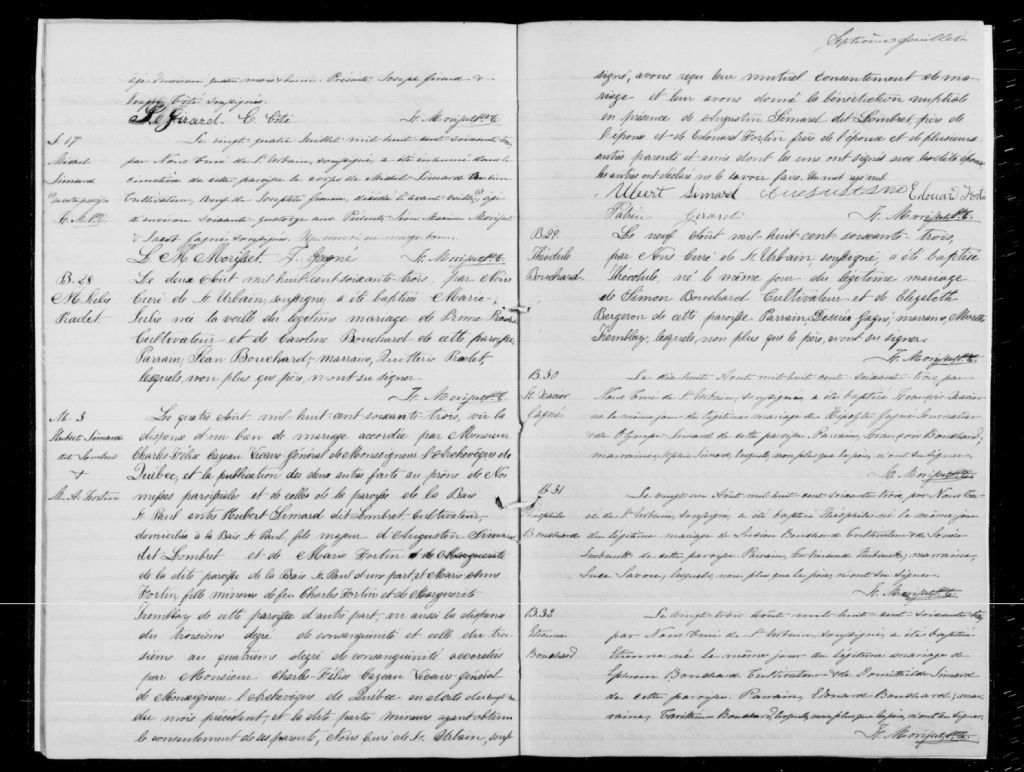 Septième feuillet
âgé d'environ quatre mois & demi. Présents, Joseph Girard &
Côté soussignés.
Girard E Côté H. Morisset Ptr
S. 17
Michel
Simard
Le vingt quatre Juillet mil huit cent soixante trois,
par Nous Curé de St Urbain, soussigné, a été inhumé dans le
cimetière de cette paroisse le corps de Michel Simard ancien
Cultivateur, époux de Josephte Simon, décédé l'avant veille, âgé
d'environ soixante quatorze ans Présents, Jean Marie Morisset
& Gagné soussignés. Renvoi en marge bon.
L. M Morisset J. Gagné H. Morisset Ptr
B. 28
M. Julie
Pradet.
Le deux Août mil huit cent soixante trois, par Nous
Curé de St Urbain, soussigné, a été baptisée Marie
Julie née la veille du légitime mariage de Pradet
Cultivateur et de Caroline Bouchard de cette paroisse
Parrain, Jean Bouchard; marraine, Pradet,
lesquels, non plus que père, n'ont su signer.
H. Morisset Ptr
M. 3
Hubert Simard
dit Lombret
&
M. A. Fortin
Le quatre Août mil huit cent soixante trois, vu la
dispense d'un ban de mariage accordée par Monsieur
Charles Félix Cazeau Vicaire Général de Monseigneur l'Archevêque de
Québec, et la publication des deux autres faite au prône de nos
messes paroissiales et de celles de la paroisse de la Baie
St Paul entre Hubert Simard dit Lombret Cultivateur
domicilié à la Baie St Paul, fils majeur d'Augustin Simard
dit Lombret et de Marie Fortin et de Marguerite
de la dite paroisse de la Baie St Paul d'une part, et Marie Anne
Fortin fille mineure de feu Charles Fortin et de Marguerite
Tremblay de cette paroisse d'autre part, vu aussi la dispense
du troisième degré de consanguinité et celle du troi-
sième au quatrième degré de consanguinité accordées
par Monsieur Charles Félix Cazeau Vicaire Général
de Monseigneur l'Archevêque de Québec en date du vingt
du mois précédent, et la dite partie mineure ayant obtenu
le consentement de ses parents, Nous Curé de St Urbain, sous-
signé, avons reçu leur mutuel consentement de ma-
riage et leur avons donné la bénédiction nuptiale
en présence de Augustin Simard dit Lombret père de
l'époux et de Edouard Fortin frère de l'épouse et de plusieurs
autres parents et amis dont les uns ont signés avec les dits époux
les autres ont déclaré ne le savoir faire. Un mot rayé nul.
Ubert Simard Augustin Edouar Forta
Girard H. Morisset Ptr
B 29.
Théodule
Bouchard.
Le neuf Août mil huit cent soixante-trois,
par Nous Curé de St Urbain, soussigné, a été baptisé
Théodule, né le même jour du légitime mariage
de Simon Bouchard Cultivateur et de Elizabeth
Bergeron de cette paroisse Parrain, Desiré Gagné, marraine,
Tremblay, lesquels, non plus que le père, n'ont su signer.
H. Morisset Ptr
B 30
F. Xavier
Gagné
Le dix huit Août mil huit cent soixante trois, par
Nous Curé de St Urbain, soussigné, a été baptisé François-Xavier
né le même jour du légitime mariage de Gagné Journalier
& de Olympe Simard de cette paroisse. Parrain, François Bouchard;
marraine, Simard, lesquels, non plus que le père, n'ont su signer.
H. Morisset Ptr
B 31
Théophile
Bouchard
Le vingt un Août mil huit cent soixante trois, par Nous Cu-
ré de St Urbain, soussigné, a été baptisé Théophile né le même jour
du légitime mariage de Bouchard Cultivateur & de
de cette paroisse Parrain, Ferdinand; marraine,
Luce Savoie, lesquels, non plus que le père, n'ont su signer.
H. Morisset Ptr
B.32
Etienne
Bouchard
Le vingt trois Août mil huit cent soixante trois,
par Nous Curé de St Urbain, soussigné, a été baptisé
Etienne né le même jour du légitime mariage de
Ephrem Bouchard Cultivateur & de Domitilde Simard
de cette paroisse. Parrain, Edouard Bouchard; mar-
raine, Bouchard, lesquels, non plus que le père, n'ont su signer.
H. Morisset Ptr